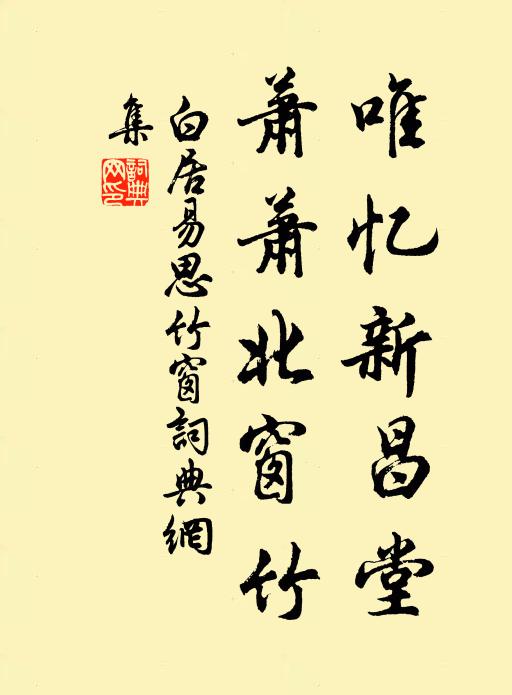 唯忆新昌堂
萧萧北窗竹
白居易思竹窗詞典網
集
詞典
网印